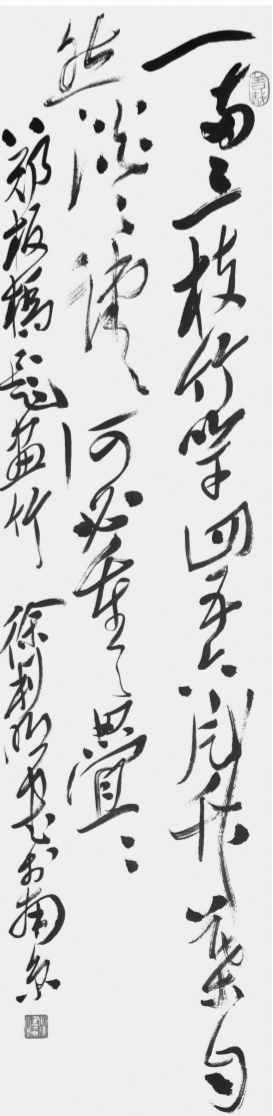 一両三枝竹竿四五六片竹葉自
然淡々疎々何必重々疊々
鄭板橋題畫竹 徐利明書於南京